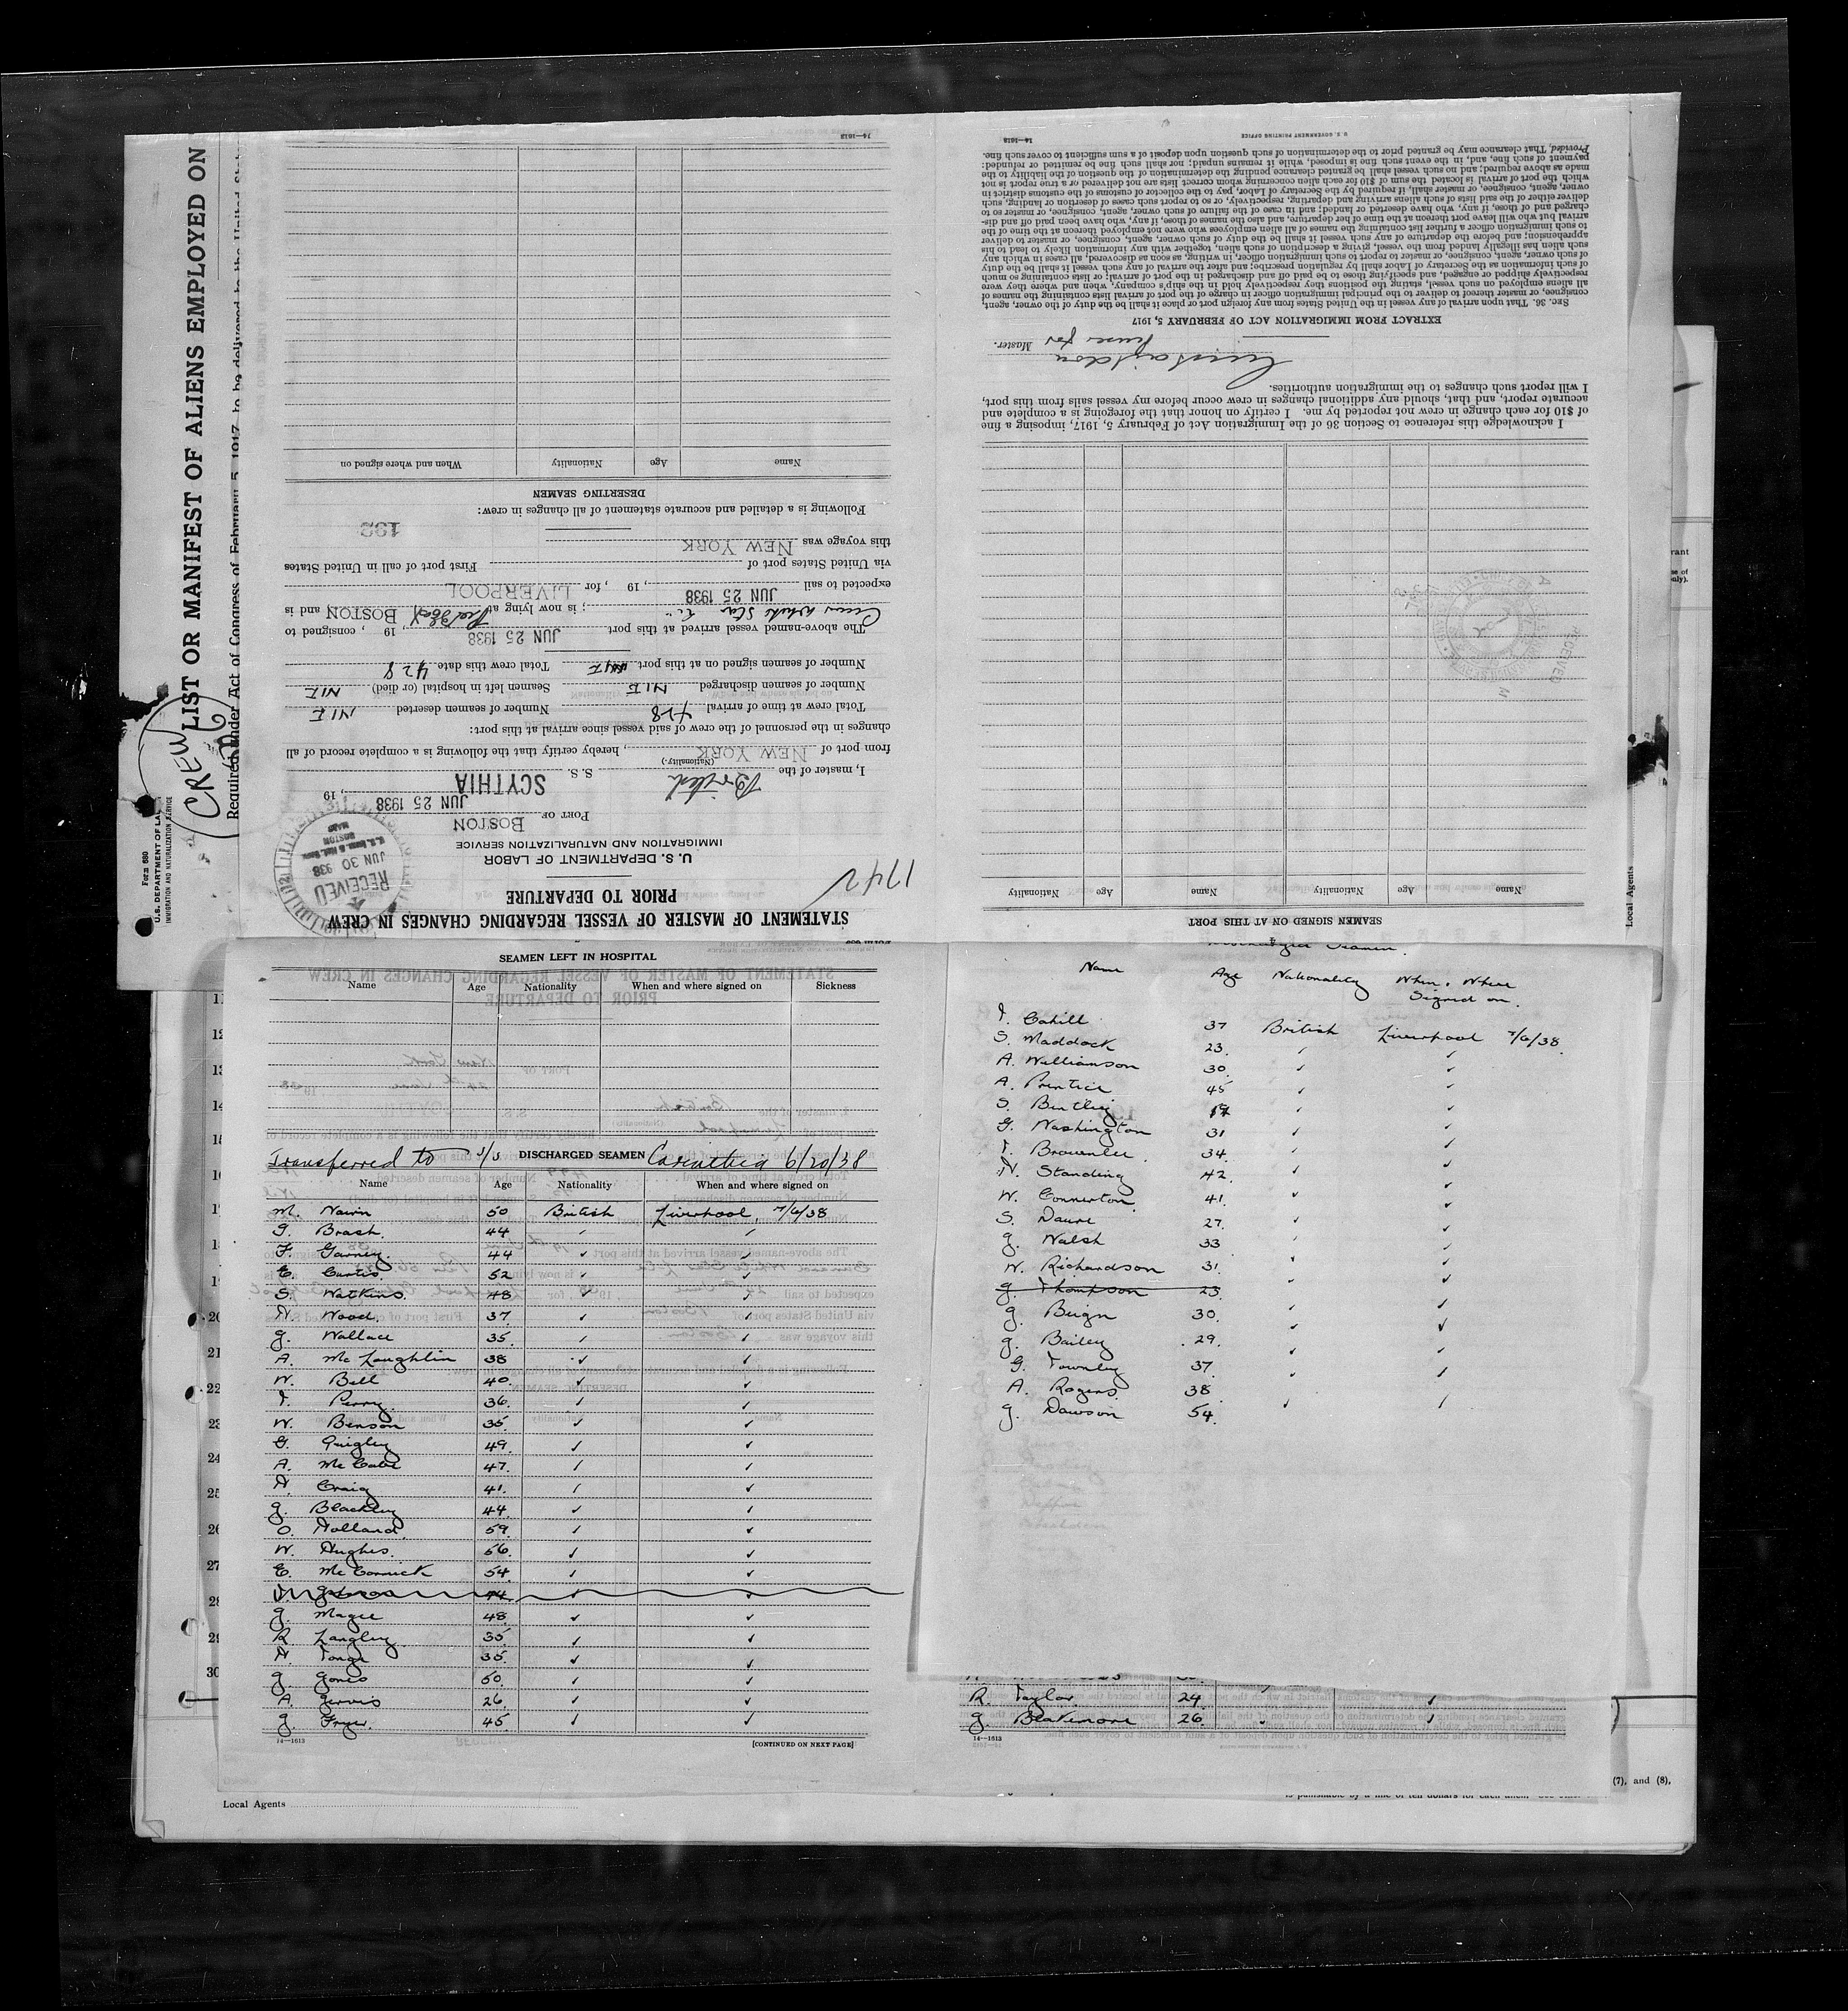 LIST OR MANIFEST OF ALIENS EMPLOYED ON
Required under Act of Congress of February 5, 1917, to be delivered to the United
CREW
Form 680
U.S. DEPARTMENT OF
IMMIGRATION AND NATURALIZATION SERVICE
1742
STATEMENT OF MASTER OF VESSEL REGARDING CHANGES IN CREW
PRIOR TO DEPARTURE
U. S. DEPARTMENT OF LABOR
IMMIGRATION AND NATURALIZATION SERVICE
RECEIVED
JUN 30 1938
BOSTON
MASS
PORT OF BOSTON
JUN 25 1938, 19
I, master of the British S. S. SCYTHIA
(Nationality)
from port of NEW YORK, hereby certify that the following is a complete record of all
changes in the personnel of the crew of said vessel since arrival at this port:
Total crew at time of arrival 428 Number of seamen deserted NIL
Number of seamen discharged NIL Seamen left in hospital (or died) NIL
Number of seamen signed on at this port NIL Total crew this date 428
The above-named vessel arrived at this port JUN 25 1938, 19 , consigned to
Cunard White Star ; is now lying at BOSTON and is
expected to sail JUN 25 1938, 19 , for LIVERPOOL
via United States port of First port of call in United States
this voyage was NEW YORK
192
Following is a detailed and accurate statement of all changes in crew:
DESERTING SEAMEN
Name Age Nationality When and where signed on
14—1613
SEAMEN SIGNED ON AT THIS PORT
Name Age Nationality Name Age Nationality
I acknowledge this reference to Section 36 of the Immigration Act of February 5, 1917, imposing a fine
of $10 for each change in crew not reported by me. I certify on honor that the foregoing is a complete and
accurate report, and that, should any additional changes in crew occur before my vessel sails from this port,
I will report such changes to the immigration authorities.
Purser for Master.
EXTRACT FROM IMMIGRATION ACT OF FEBRUARY 5, 1917
SEC. 36. That upon arrival of any vessel in the United States from any foreign port or place it shall be the duty of the owner, agent,
consignee, or master thereof to deliver to the principal immigration officer in charge of the port of arrival lists containing the names of
all aliens employed on such vessel, stating the positions they respectively hold in the ship's company, when and where they were
respectively shipped or engaged, and specifying those to be paid off and discharged in the port of arrival; or lists containing so much
of such information as the Secretary of Labor shall by regulation prescribe; and after the arrival of any such vessel it shall be the duty
of such owner, agent, consignee, or master to report to such immigration officer, in writing, as soon as discovered, all cases in which any
such alien has illegally landed from the vessel, giving a description of such alien, together with any information likely to lead to his
apprehension; and before the departure of any such vessel it shall be the duty of such owner, agent, consignee, or master to deliver
to such immigration officer a further list containing the names of all alien employees who were not employed thereon at the time of the
arrival but who will leave port thereon at the time of her departure, and also the names of those, if any, who have been paid off and dis-
charged and of those, if any, who have deserted or landed; and in case of the failure of such owner, agent, consignee, or master so to
deliver either of the said lists of such aliens arriving and departing, respectively, or so to report such cases of desertion or landing, such
owner, agent, consignee, or master shall, if required by the Secretary of Labor, pay to the collector of customs of the customs district in
which the port of arrival is located the sum of $10 for each alien concerning whom correct lists are not delivered or a true report is not
made as above required; and no such vessel shall be granted clearance pending the determination of the question of the liability to the
payment of such fine, and, in the event such fine is imposed, while it remains unpaid; nor shall such fine be remitted or refunded:
Provided, That clearance may be granted prior to the determination of such question upon deposit of a sum sufficient to cover such fine.
14—1613
U. S. GOVERNMENT PRINTING OFFICE
SEAMEN LEFT IN HOSPITAL
Name Age Nationality When and where signed on Sickness
Transferred to S/S DISCHARGED SEAMEN Carinthia 6/20/38
Name Age Nationality When and where signed on
M. Nairn 50 British Liverpool, 7/6/38
G. Brash. 44 ✓ ✓
F. Garney. 44 ✓ ✓
E. Curtis. 52 ✓ ✓
S. Watkins. 48 ✓ ✓
H. Wood. 37 ✓ ✓
J. Wallace 35 ✓ ✓
A. McLaughlin 38 ✓ ✓
W. Bell 40 ✓ ✓
T. Perry. 36. ✓ ✓
W. Benson 35 ✓ ✓
G. Quigley 49. ✓ ✓
A. McCabe 47. ✓ ✓
H. Craig 41. ✓ ✓
J. Blackley 44. ✓ ✓
O. Holland. 59. ✓ ✓
W. Hughes. 56. ✓ ✓
E. McCormick 54. ✓ ✓
44. ✓ ✓
J. Magee 48. ✓ ✓
R. Langley 35. ✓ ✓
H. Tonge 35. ✓ ✓
J. Jones 50. ✓ ✓
A. Jervis 26. ✓ ✓
J. Fryer. 45. ✓ ✓
14—1613 [CONTINUED ON NEXT PAGE]
Discharged Seamen.
Name Age Nationality When & Where
Signed on.
T. Cahill 37 British Liverpool 7/6/38.
S. Maddock 23. ✓ ✓
A. Williamson 30. ✓ ✓
A. Prentice 45 ✓ ✓
S. Bentley 19 ✓ ✓
G. Washington 31 ✓ ✓
T. Brownlee. 34. ✓ ✓
H. Standing 42. ✓ ✓
W. Connerton 41. ✓ ✓
S. Daure 27. ✓ ✓
J. Walsh 33 ✓ ✓
W. Richardson 31. ✓ ✓
J. Thompson 23.
J. Beign 30. ✓ ✓
J. Bailey 29. ✓ ✓
G. Townley 37. ✓ ✓
A. Rogers. 38. ✓ ✓
J. Dawson 54. ✓ ✓
R. Taylor. 24. ✓ ✓
J. Blakemore 26. ✓ ✓
14—1613
12
13
14
15
16
20
21
22
23
24
25
26
27
28
30
(7), and (8),
Local Agents
Local Agents